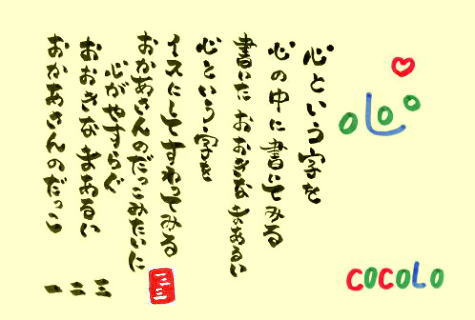 心という字を
心の中に書いてみる
書いた おおきな まあるい
心という字を
イスにしてすわってみる
おかあさんのだっこみたいに
心がやすらぐ
おおきな まあるい
おかあさんのだっこ
一二三
一二三
COCOLO